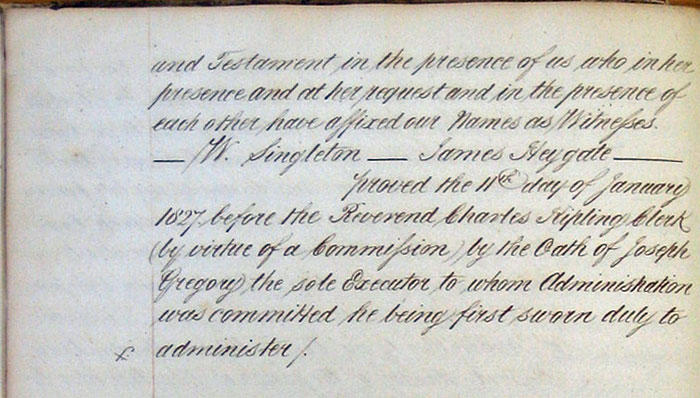 and Testament in the presence of us who in her
presence and at her request and in the presence of
each other have affixed our Names as Witnesses.
— W. Singleton — James Heygate —
proved the 11th day of January
1827 before the Reverend Charles Kipling Clerk
(by virtue of a Commission) by the Oath of Joseph
Gregory the sole Executor to whom Administration
was committed he being first sworn duly to
x administer /.